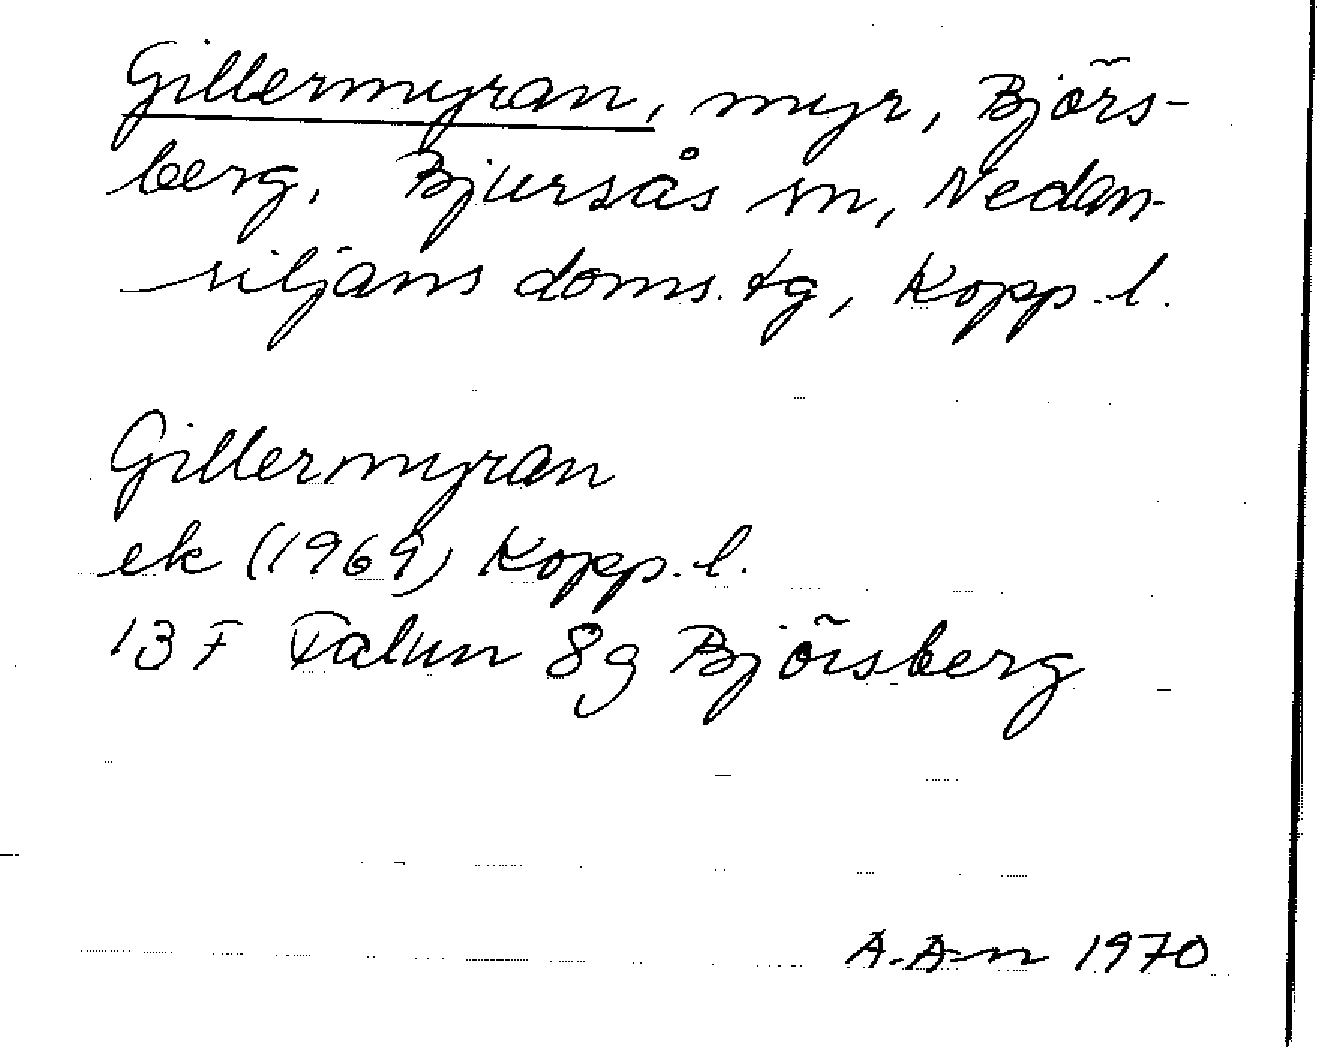 Gillermyran, myr, Björs-
berg, Bjursås sn, Nedan-
siljans doms. tg, Kopp. l.
Gillermyran
ek (1969) Kopp. l.
13 F Falun 8g Björsberg
A. A-n 1970